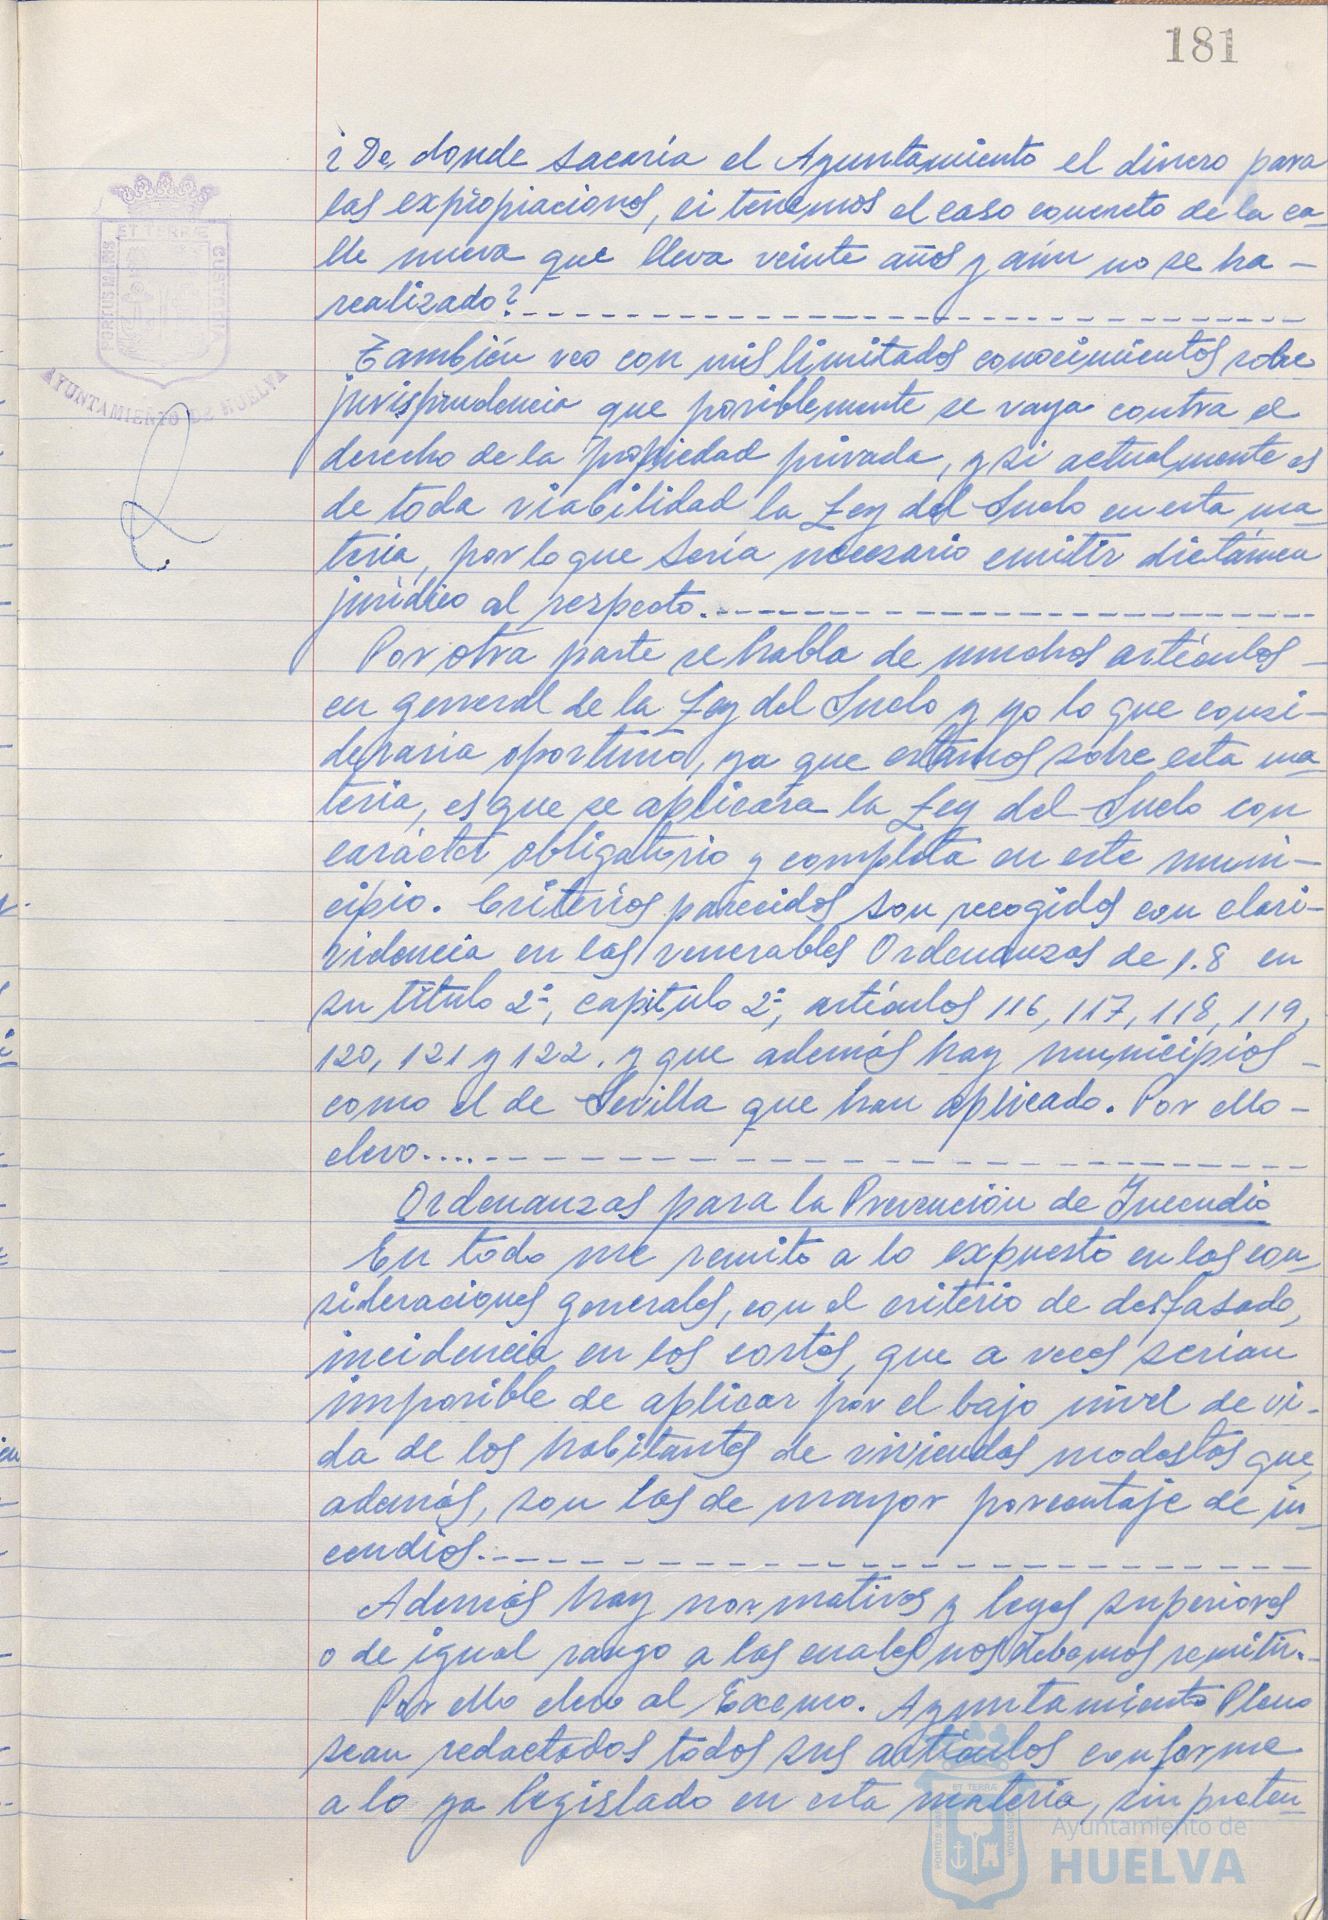 181
¿De donde sacaría el Ayuntamiento el dinero para
las expropiaciones, si tenemos el caso concreto de la ca-
lle nueva que lleva veinte años y aún no se ha -
realizado?
También veo con mis limitados conocimientos sobre
jurisprudencia que posiblemente se vaya contra el
derecho de la propiedad privada, y si actualmente es
de toda viabilidad la Ley del Suelo en esta ma-
teria, por lo que sería necesario emitir dictámen
jurídico al respecto.
Por otra parte se habla de muchos artículos -
en general de la Ley del Suelo y yo lo que consi-
deraria oportuno, ya que estamos sobre esta ma-
teria, es que se aplicara la Ley del Suelo con
carácter obligatorio y completa en este muni-
cipio. Criterios parecidos son recogidos con clari-
videncia en las venerables Ordenanzas de 1.8 en
su título 2º, capitulo 2º, artículos 116, 117, 118, 119,
120, 121 y 122. y que además hay municipios -
como el de Sevilla que han aplicado. Por ello -
elevo....
Ordenanzas para la Prevención de Incendio
En todo me remito a lo expuesto en las con-
sideraciones generales, con el criterio de desfasado,
incidencia en los costos, que a veces serian
imposible de aplicar por el bajo nivel de vi-
da de los habitantes de viviendas modestas que,
además, son las de mayor porcentaje de in-
cendios.
Además hay normativas y leyes superiores
o de igual rango a las cuales nos debemos remitir.-
Por ello elevo al Excmo. Ayuntamiento Pleno
sean redactados todos sus artículos conforme
a lo ya legislado en esta materia, sin preten-
PORTUS MARIS
ET TERRÆ
CUSTODIA
AYUNTAMIENTO DE HUELVA
PORTUS MARIS
ET TERRÆ
CUSTODIA
Ayuntamiento de
HUELVA